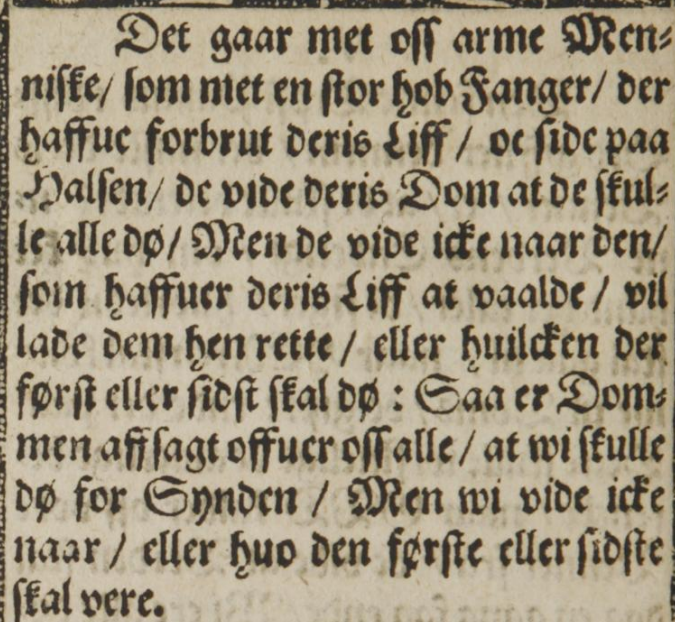 Det gaar met oss arme Men⸗
niske/ som met en stor hob Fanger/ der
haffue forbrut deris Liff / oc side paa
Halsen/ de vide deris Dom at de skul⸗
le alle dø/ Men de vide icke naar den/
som haffuer deris Liff at vaalde / vil
lade dem hen rette / eller huilcken der
først eller sidst skal dø : Saa er Dom⸗
men affsagt offuer oss alle / at wi skulle
dø for Synden / Men wi vide icke
naar / eller huo den første eller sidste
skal vere.